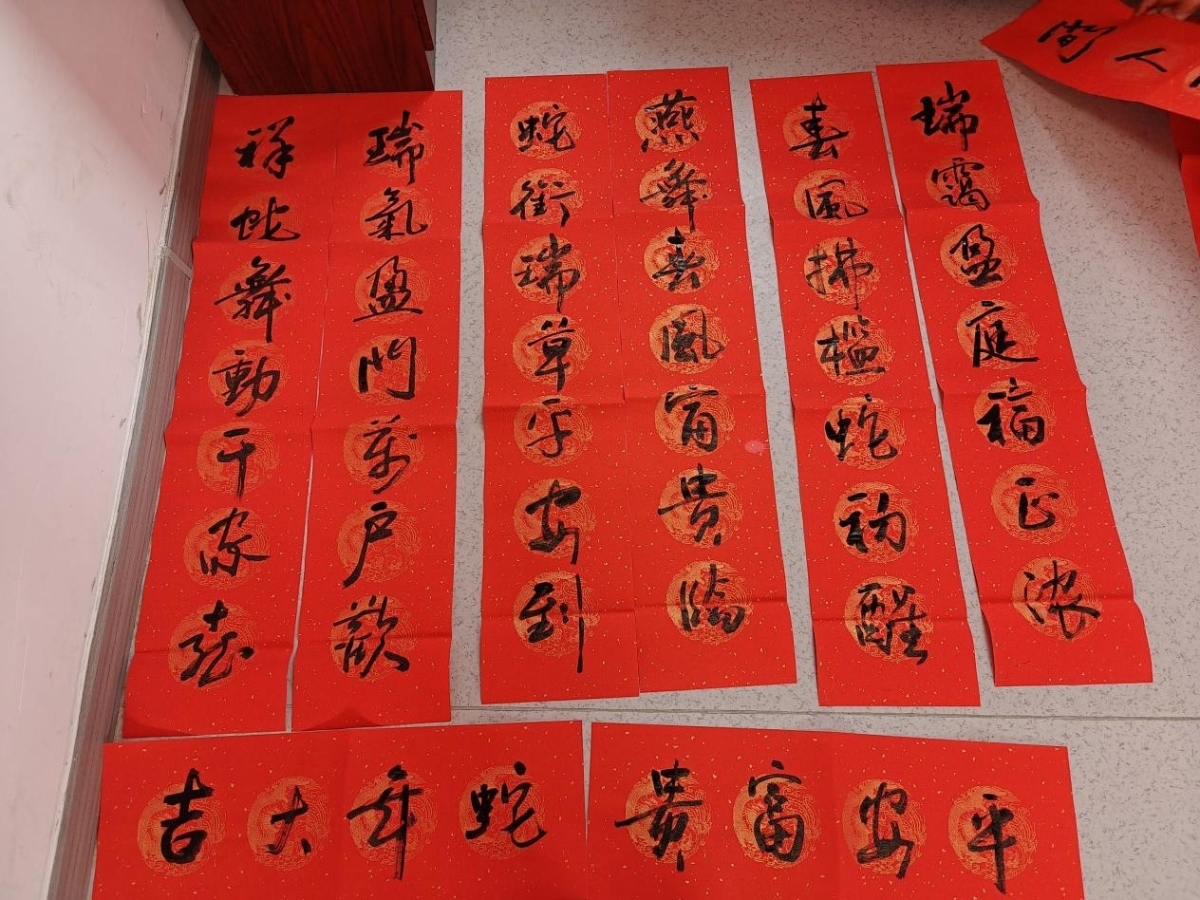 人間
瑞靄盈庭福正浓
春風拂檻蛇初醒
燕舞春風富貴臨
蛇銜瑞草平安到
瑞氣盈門萬户歡
祥蛇舞動千家喜
平安富貴
蛇年大吉